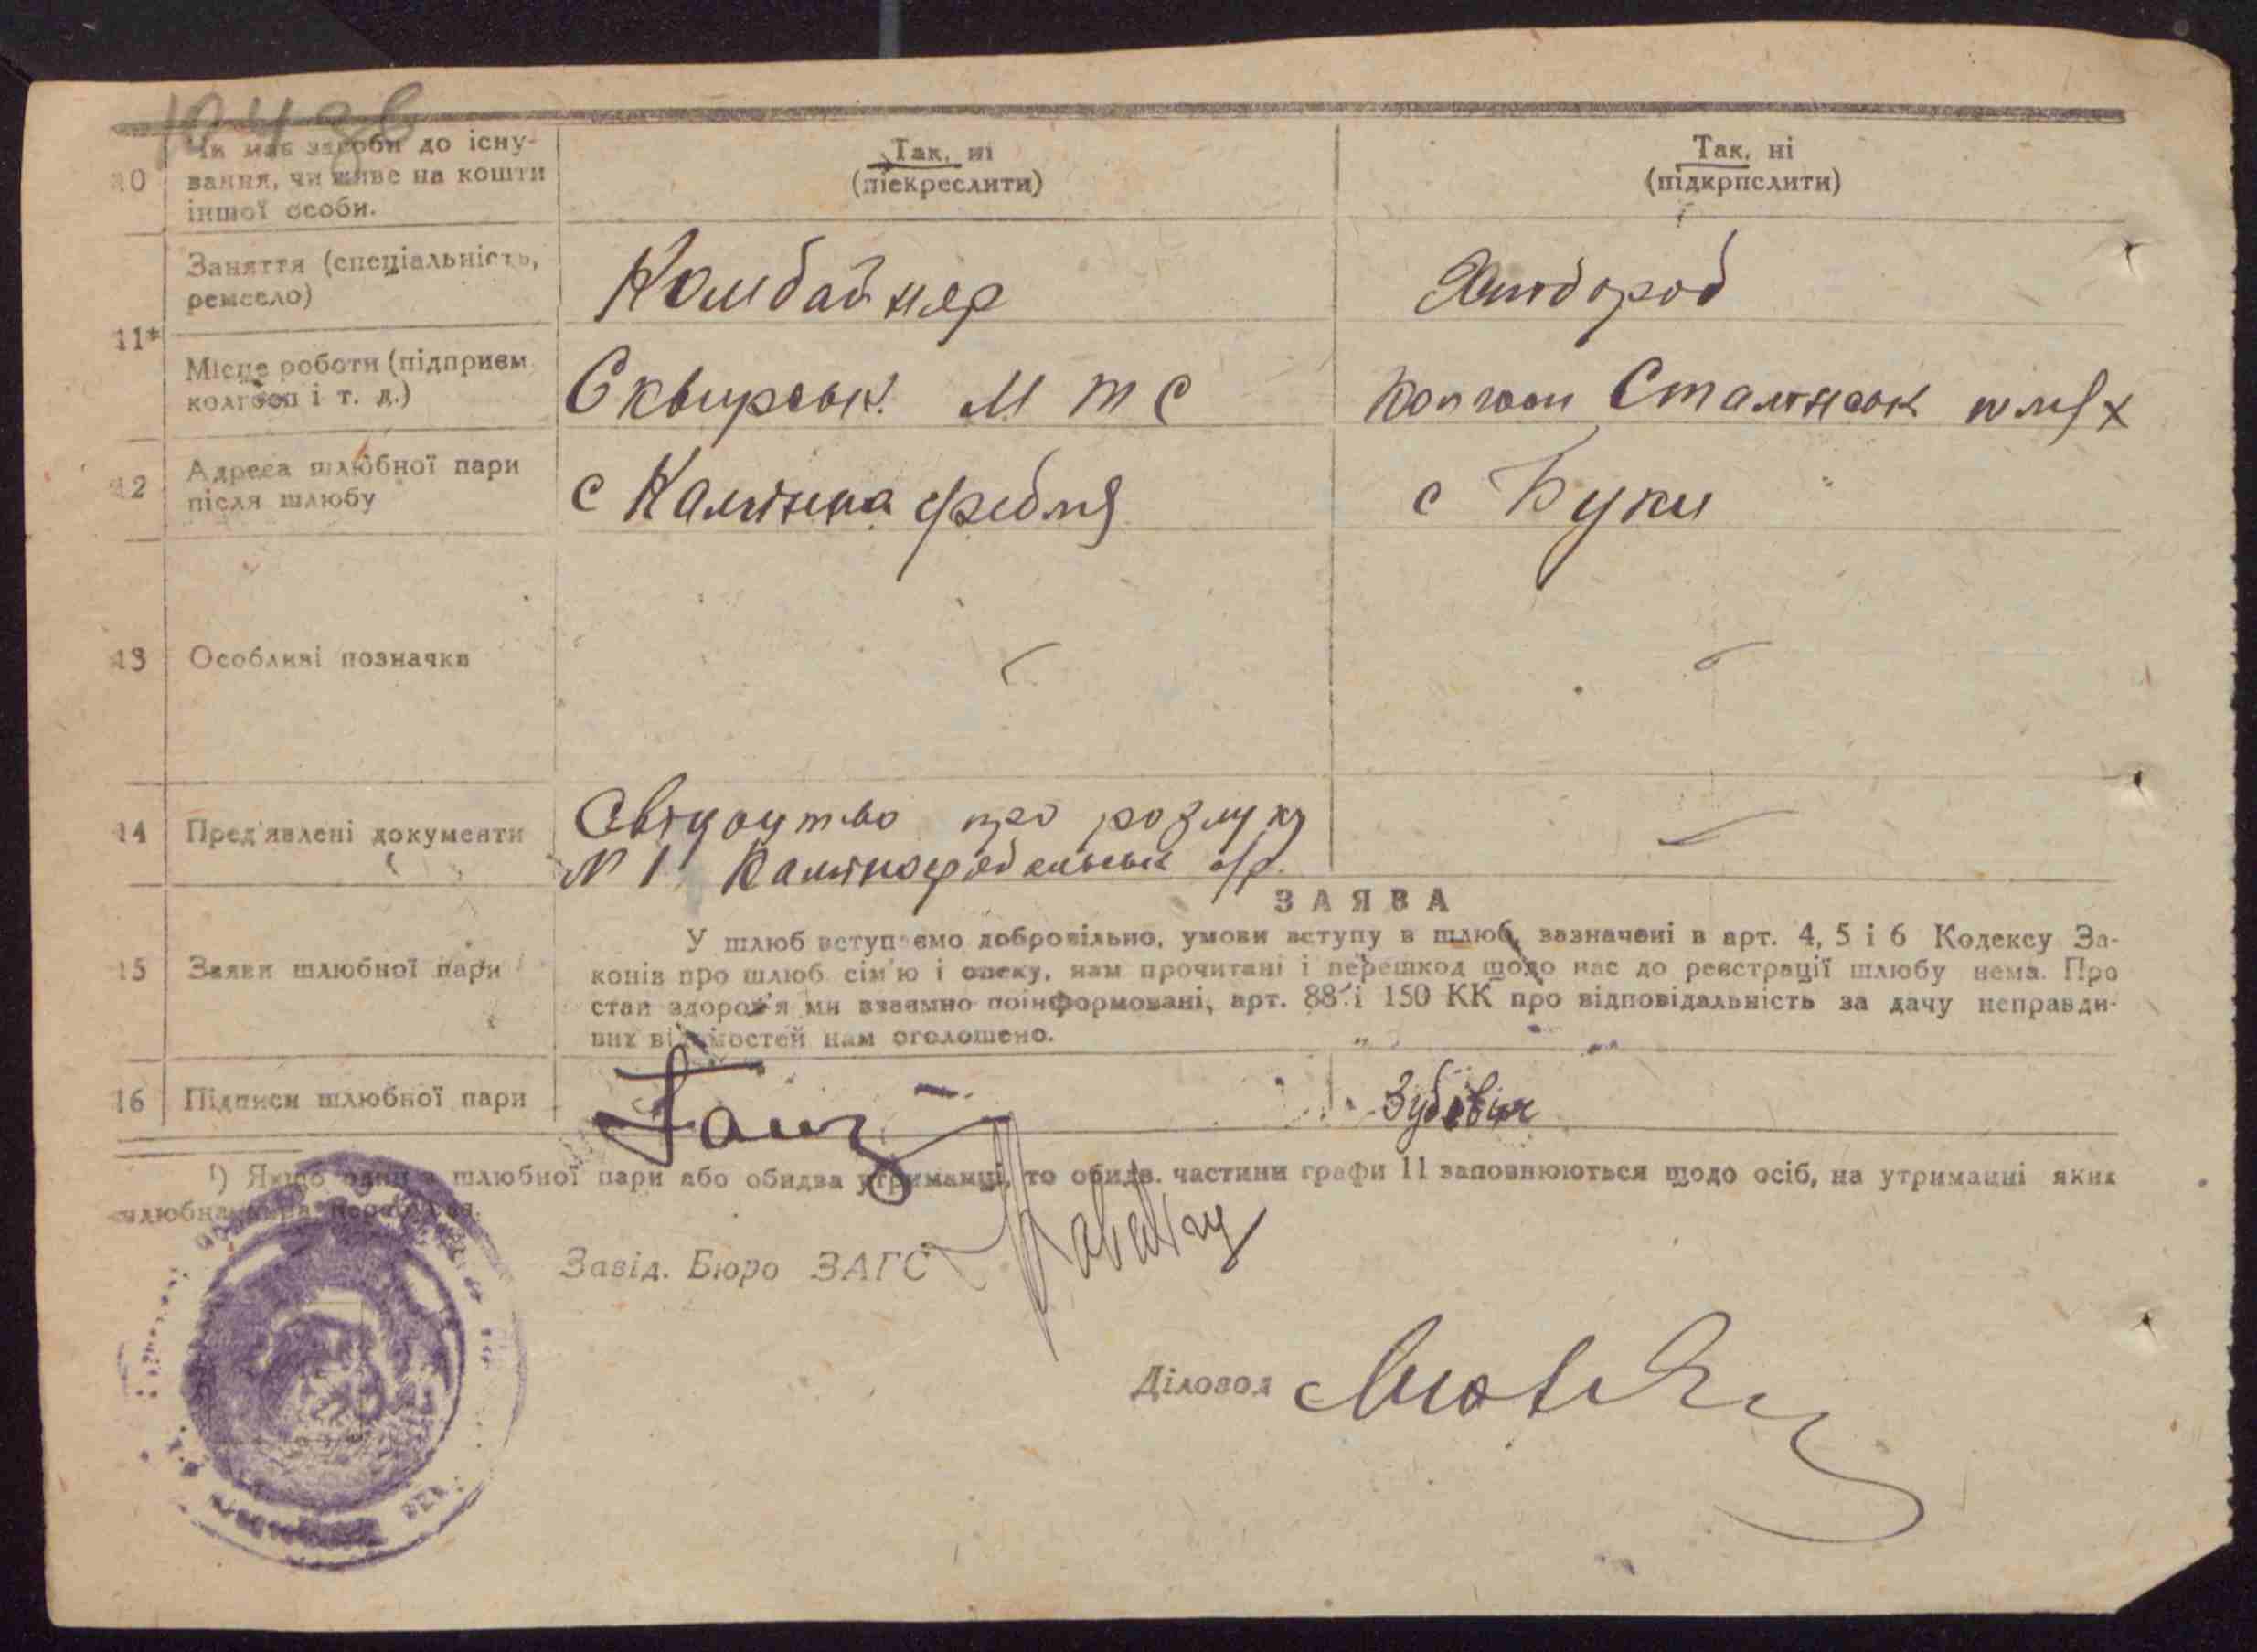 10
Чи має засоби до існу-
вання, чи живе на кошти
іншої особи.
Так, ні
(піекреслити)
Так, ні
(підкрпслити)
11*
Заняття (спеціальність,
ремесло)
Комбайнер
Хлібороб
Місце роботи (підприєм
колгосп і т. д.)
Сквирськ. М Т С
Колгосп Сталінськ шлях
12
Адреса шлюбної пари
після шлюбу
с Камяна гребля
с Буки
13
Особливі позначки
14
Пред'явлені документи
Свідоцтво про розлуку
N 1 Камяногребельськ с/р.
ЗАЯВА
15
Заяви шлюбної пари
У шлюб вступаємо добровільно, умови вступу в шлюб, зазначені в арт. 4, 5 і 6 Кодексу За-
конів про шлюб сім'ю і опеку, нам прочитані і перешкод щодо нас до реєстрації шлюбу нема. Про
стан здоров'я ми взаємно поінформовані, арт. 88 і 150 КК про відповідальність за дачу неправди-
вих відомостей нам оголошено.
16
Підписи шлюбної пари
Зубевіч
1) Якщо один з шлюбної пари або обидва утриманці, то обидв. частини графи 11 заповнюються щодо осіб, на утриманні яких
шлюбна пара перебуває.
Завід. Бюро ЗАГС
Діловод